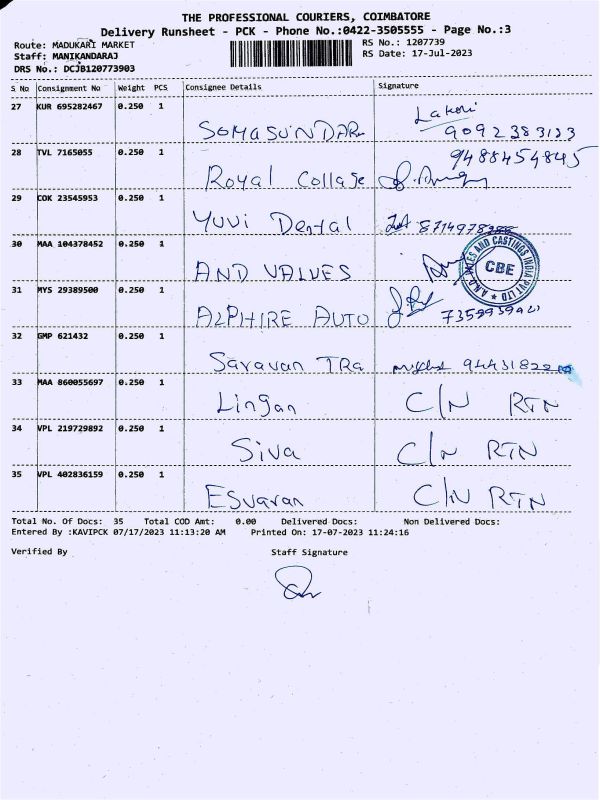 THE PROFESSIONAL COURIERS, COIMBATORE
Delivery Runsheet - PCK - Phone No.:0422-3505555 - Page No.:3
Route: MADUKARI MARKET RS No.: 1207739
Staff: MANIKANDARAJ RS Date: 17-Jul-2023
DRS No.: DCJB120773903
S No Consignment No Weight PCS Consignee Details Signature
27 KUR 695282467 0.250 1 SOMASUNDAR 9092383123
28 TVL 7165055 0.250 1 Royal Collage 9488454845
29 COK 23545953 0.250 1 YUVI Dental
30 MAA 104378452 0.250 1 AND VALVES
A.N.D. VALVES AND CASTINGS INDIA PVT LTD CBE
31 MYS 29389500 0.250 1 ALPHIRE AUTO
32 GMP 621432 0.250 1 Saravan TRa
33 MAA 860055697 0.250 1 Lingan C/N RTN
34 VPL 219729892 0.250 1 Siva C/N RTN
35 VPL 402836159 0.250 1 Esvaran C/N RTN
Total No. Of Docs: 35 Total COD Amt: 0.00 Delivered Docs: Non Delivered Docs:
Entered By :KAVIPCK 07/17/2023 11:13:20 AM Printed On: 17-07-2023 11:24:16
Verified By Staff Signature